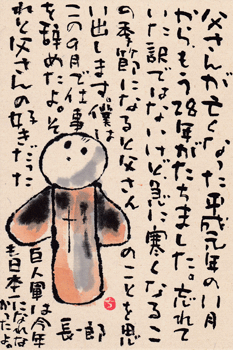 父さんが亡くなった平成元年の11月
から、もう28年がたちました。忘れて
いた訳ではないけど、急に寒くなるこ
の季節になると父さんのことを思
い出します。僕は
この9月で仕事
を辞めたよ。そ
れと父さんの好きだった
巨人軍は今年
も日本一になれな
かったよ。
長一郎